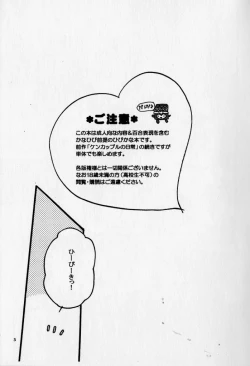 *ご注意*
この本は成人向な内容&百合表現を含む
かなひび前提のひびかな本です。
前作「ケンカップルの日常」の続きですが
単体でも楽しめます。
各版権様とは一切関係ございません。
なお18歳未満の方(高校生不可)の
閲覧・購読はご遠慮ください。
ひーびーきっ!
3